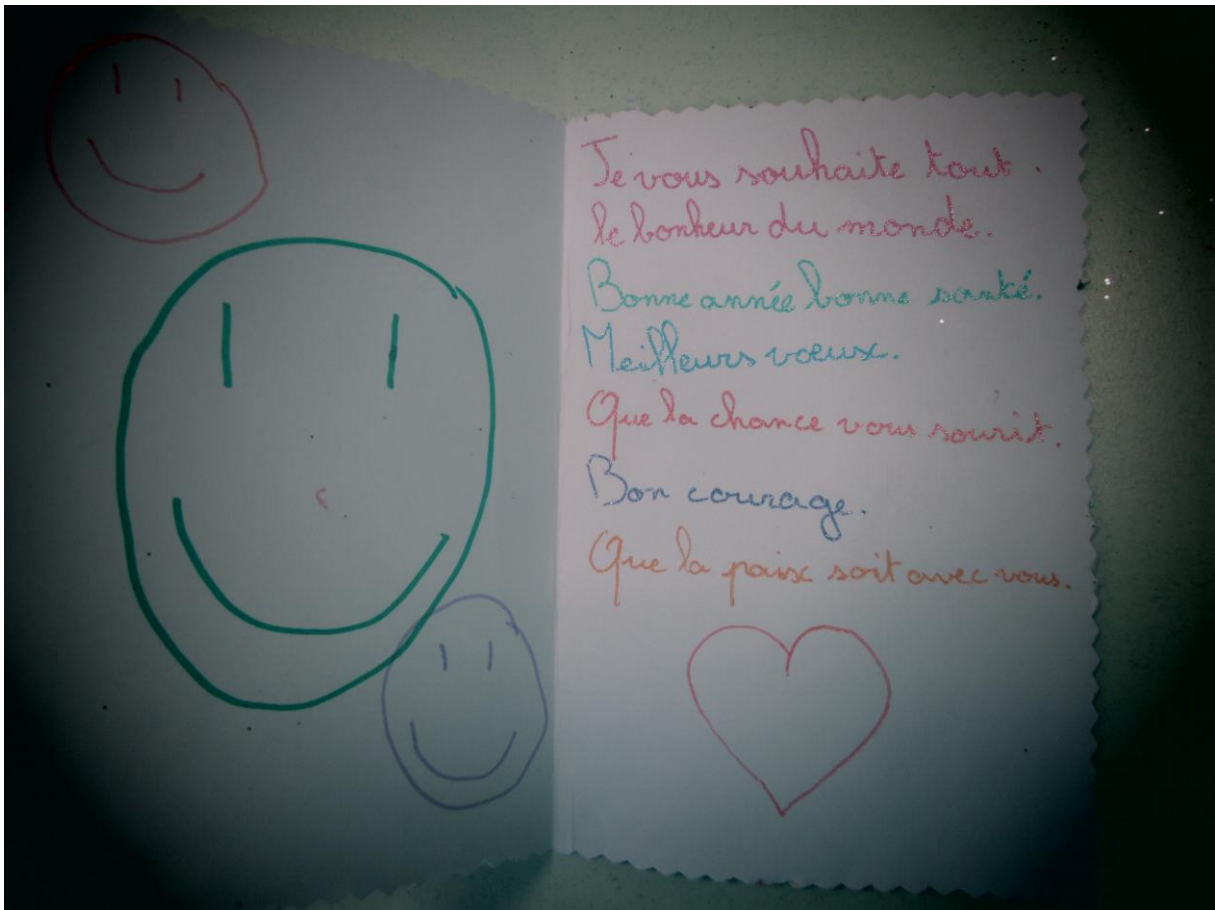 Je vous souhaite tout.
le bonheur du monde.
Bonne année bonne santé.
Meilleurs vœux.
Que la chance vous sourit.
Bon courage.
Que la paix soit avec vous.